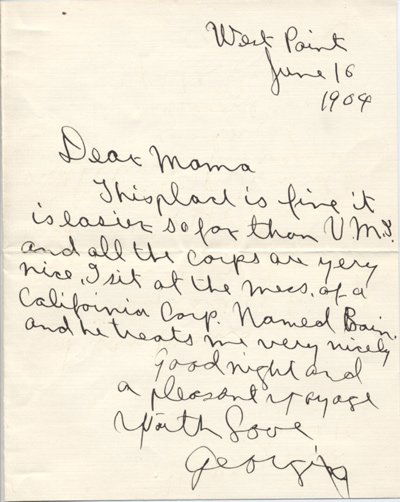 West Point
June 16
1904
Dear Mama
This place is fine it
is easier so far than V.M.I.
and all the corps are very
nice, I sit at the mess, of a
California Corp. Named Bain.
and he treats me very nicely
Good night and
a pleasant voyage
With Love
Georgie